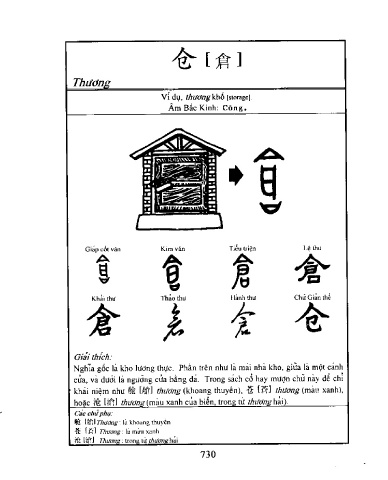 仓 [倉]
Thương
Ví dụ, thương khố [storage]
Âm Bắc Kinh: Cāng.
Giáp cốt văn Kim văn Tiểu triện Lệ thư
倉 倉
Khải thư Thảo thư Hành thư Chữ Giản thể
倉 倉 仓
Giải thích:
Nghĩa gốc là kho lương thực. Phần trên như là mái nhà kho, giữa là một cánh
cửa, và dưới là ngưỡng cửa bằng đá. Trong sách cổ hay mượn chữ này để chỉ
khái niệm như 舱 [艙] thương (khoang thuyền), 苍 [蒼] thương (màu xanh),
hoặc 沧 [滄] thương (màu xanh của biển, trong từ thương hải).
Các chữ phụ:
舱 [艙] Thương : là khoang thuyền
苍 [蒼] Thương : là màu xanh
沧 [滄] Thương : trong từ thương hải
730